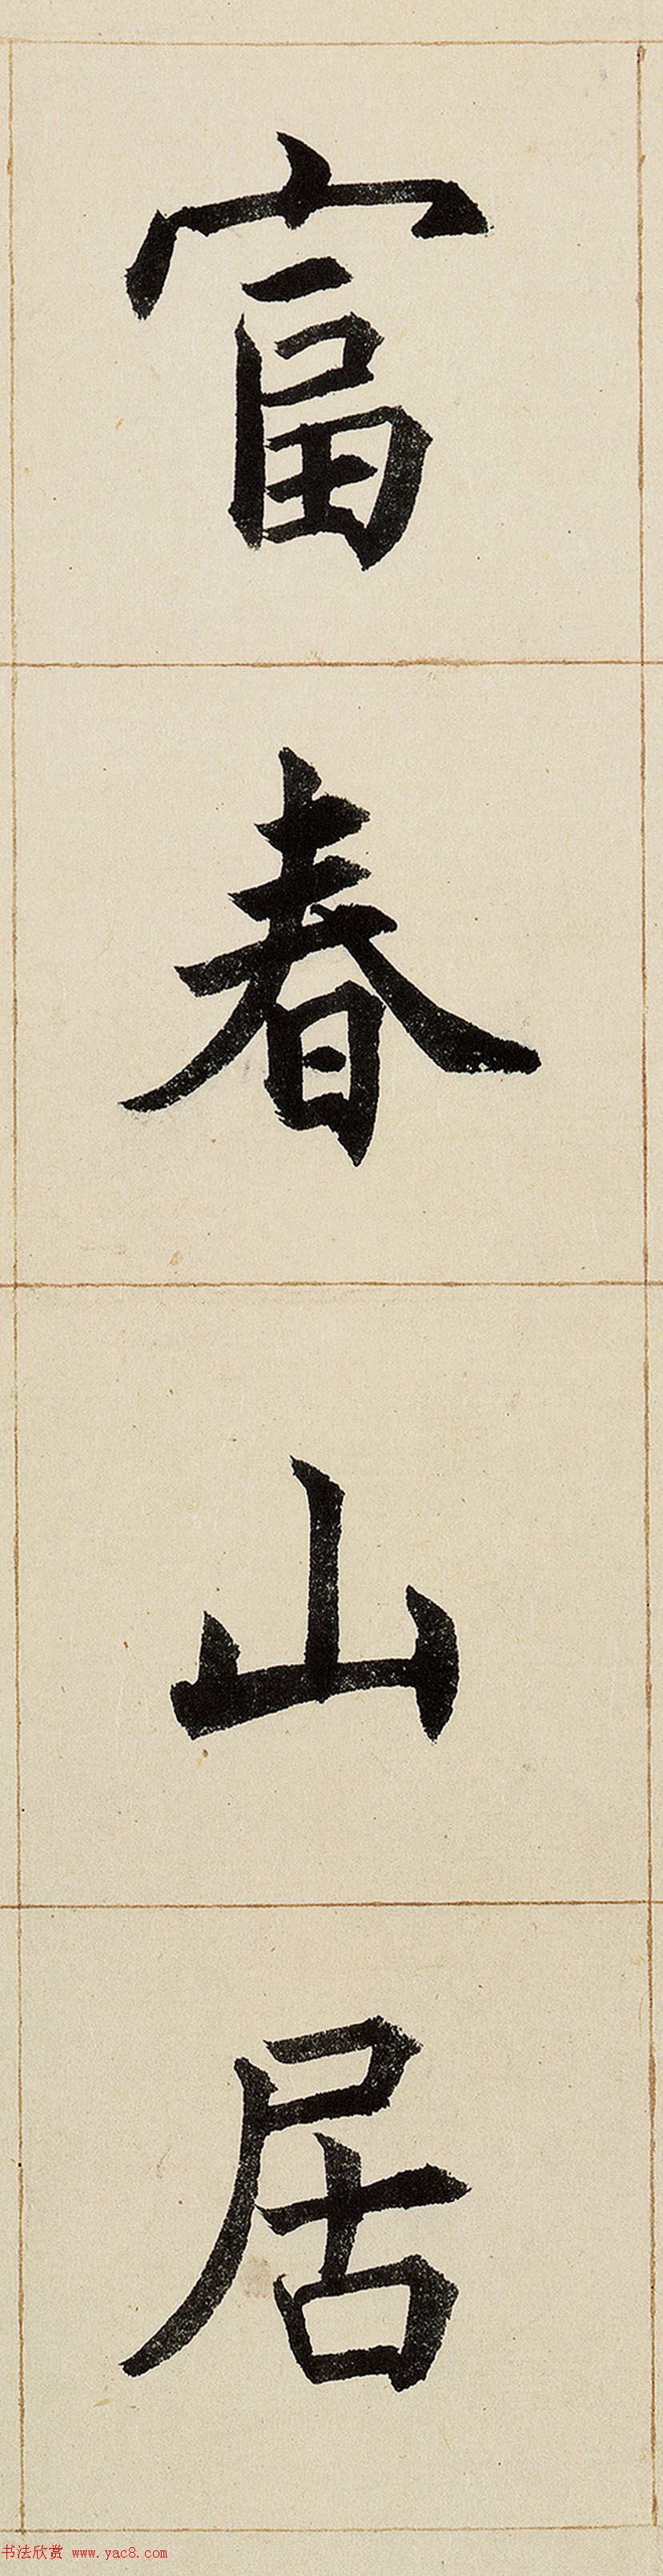 富春山居
书法欣赏 www.yac8.com